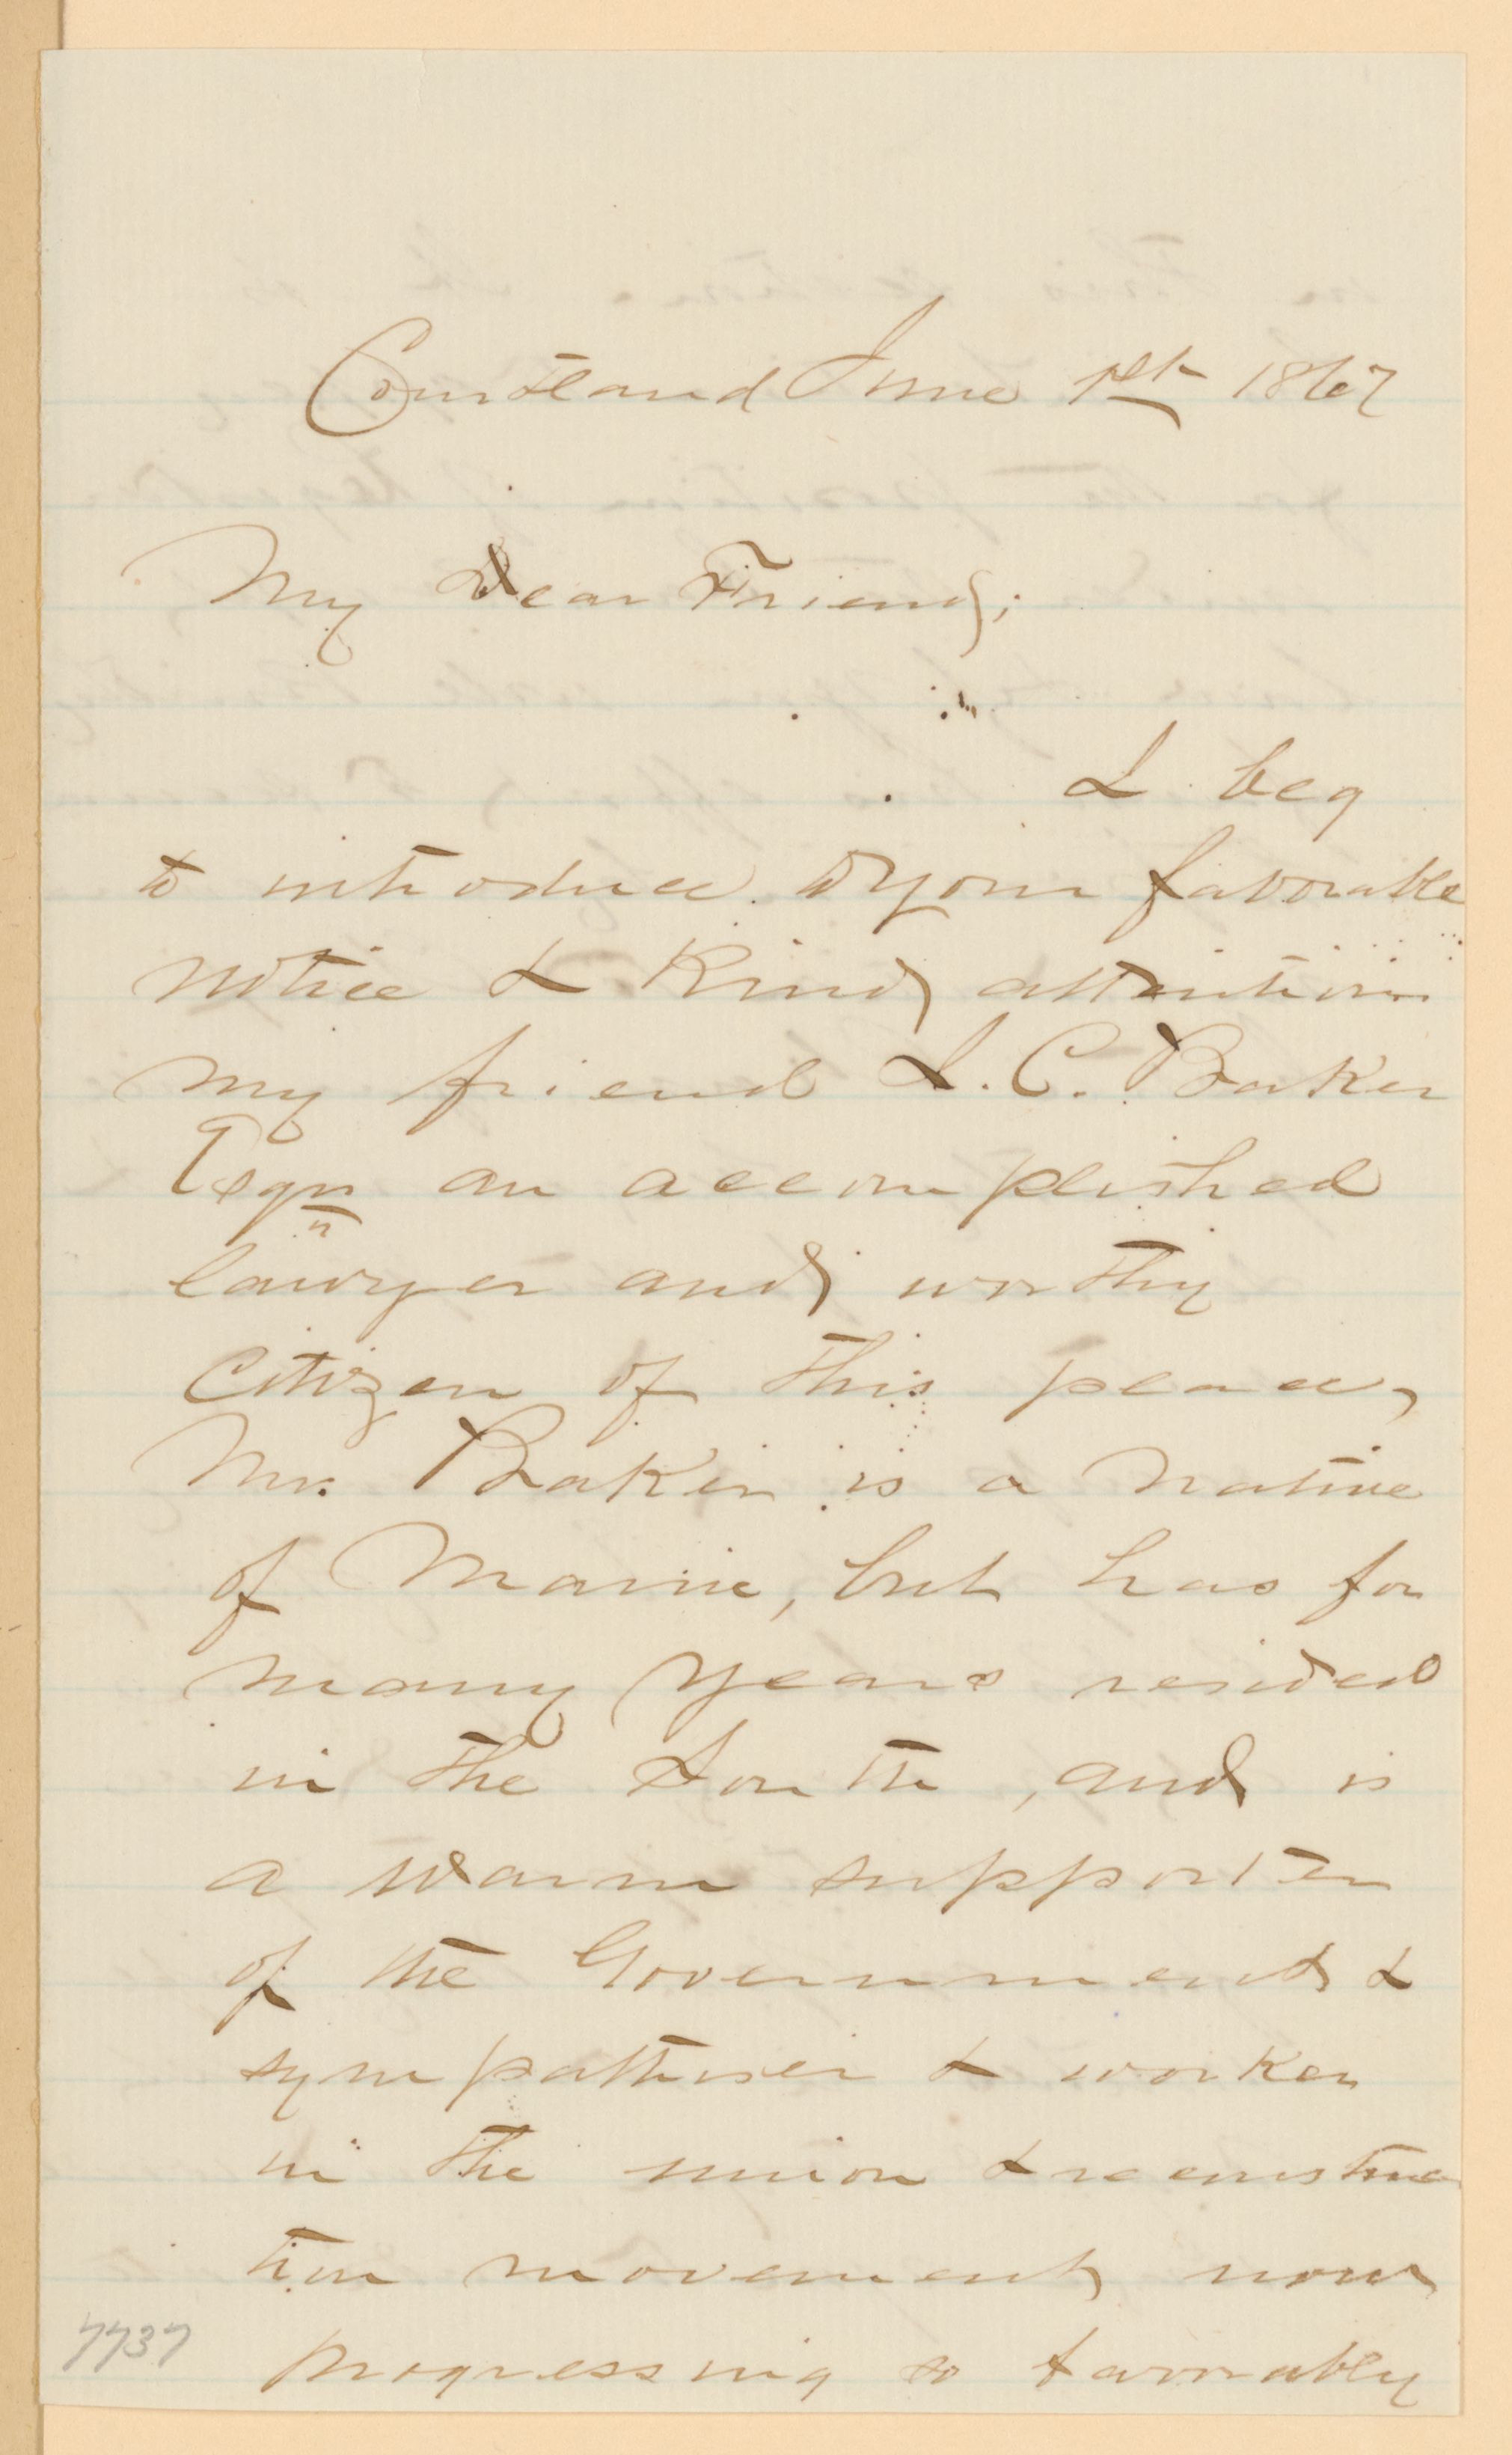 Courtland June 1st 1867
My Dear Friend;
I beg
to introduce to your favorable
notice & kind attention
my friend L. C. Baker
Esqr an accomplished
lawyer and worthy
Citizen of this place,
Mr. Baker is a native
of Maine, but has for
many years resided
in the South, and is
a warm supporter
of the Government &
sympathiser & worker
in the union & reconstruc
tion movement now
progressing so favorably
7737